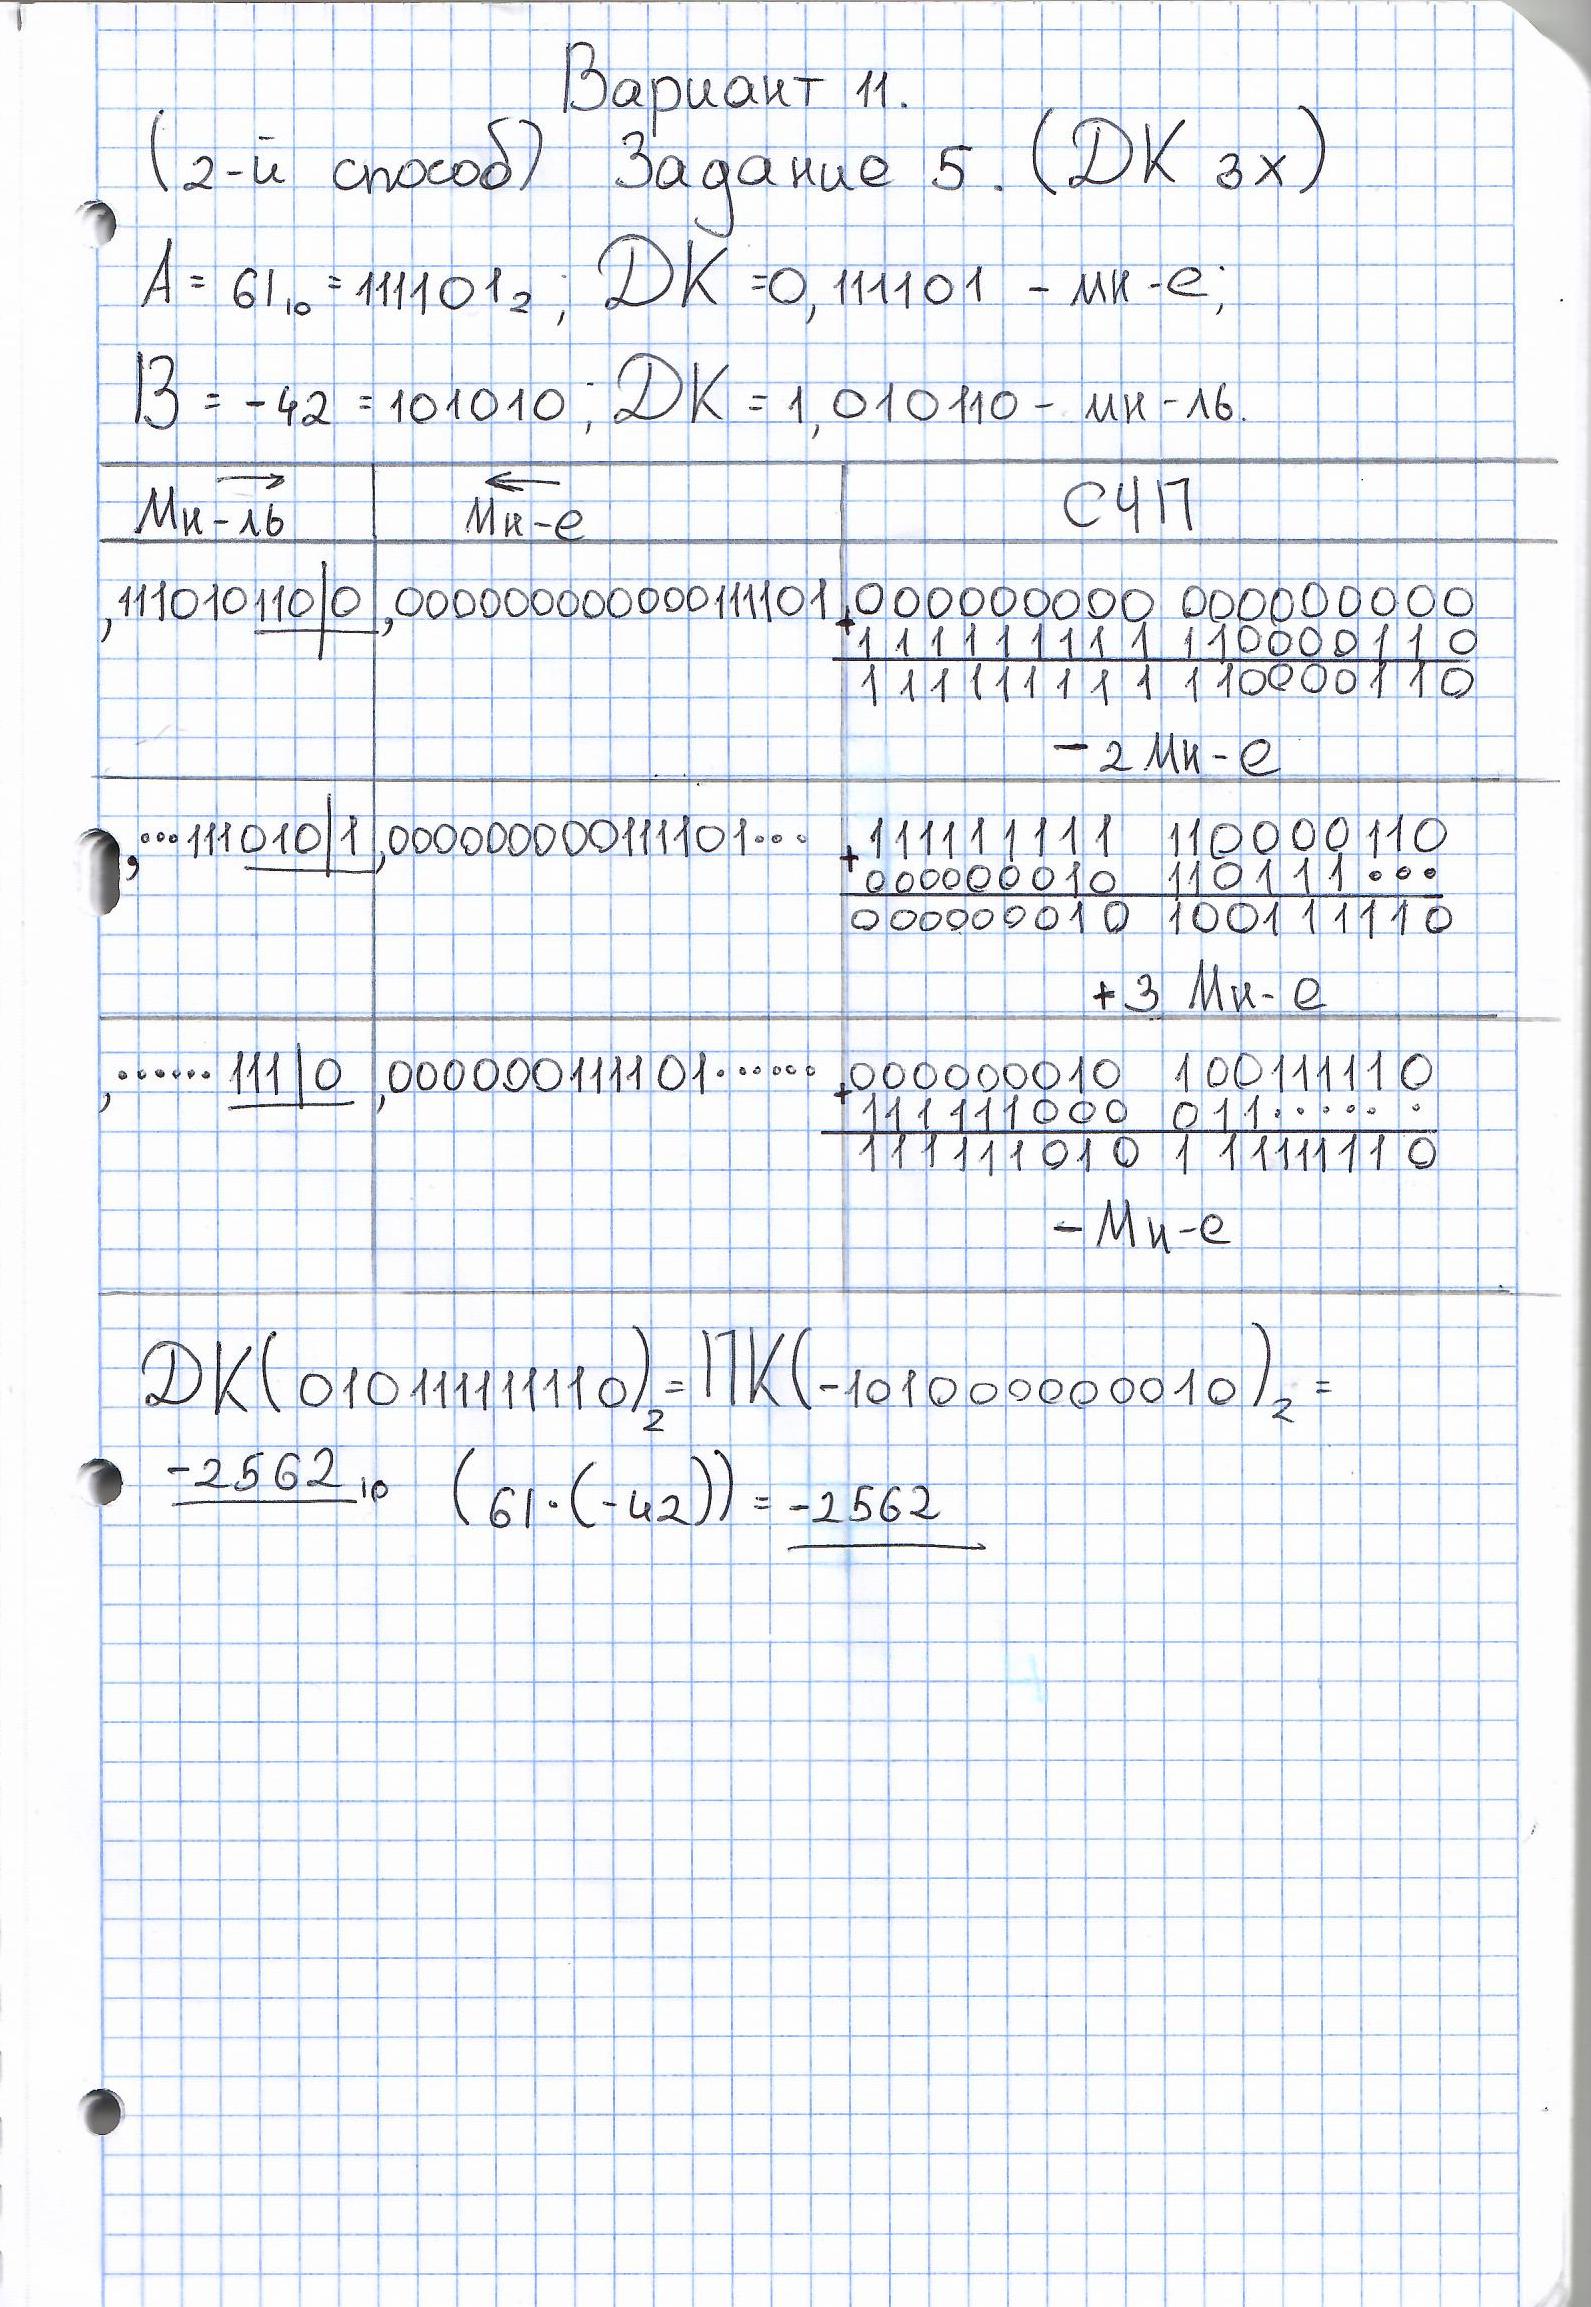 Вариант 11.
(2-й способ) Задание 5. (ДК 3х)
A = 61₁₀ = 111101₂; ДК = 0,111101 - мн-е;
B = -42 = 101010; ДК = 1,010110 - мн-ль.
Мн-ль → Мн-е ← СЧП
,111010110|0 ,000000000000111101 +000000000 000000000
111111111 110000110
111111111 110000110
- 2 Мн-е
,...111010|1 ,000000000111101... +111111111 110000110
000000010 110111...
000000010 100111110
+ 3 Мн-е
,......111|0 ,000000111101...... +000000010 100111110
111111000 011......
111111010 111111110
- Мн-е
ДК(0101111111110)₂ = ПК(-101000000010)₂ =
-2562₁₀ (61·(-42)) = -2562